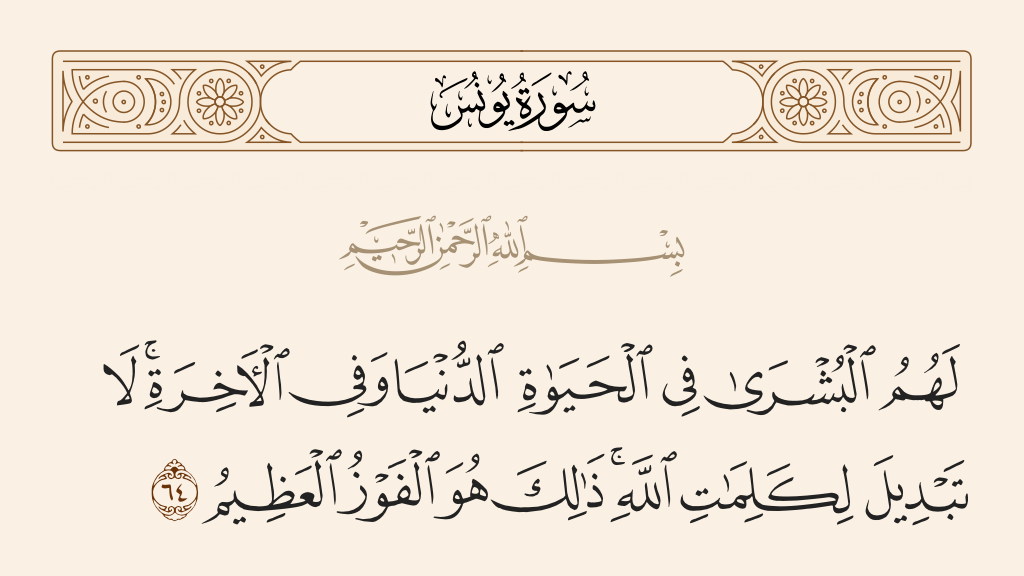 سُورَةُ يُونُسَ
بِسْمِ ٱللَّهِ ٱلرَّحْمَٰنِ ٱلرَّحِيمِ
لَهُمُ ٱلْبُشْرَىٰ فِى ٱلْحَيَوٰةِ ٱلدُّنْيَا وَفِى ٱلْـَٔاخِرَةِ ۚ لَا
تَبْدِيلَ لِكَلِمَٰتِ ٱللَّهِ ۚ ذَٰلِكَ هُوَ ٱلْفَوْزُ ٱلْعَظِيمُ ٦٤